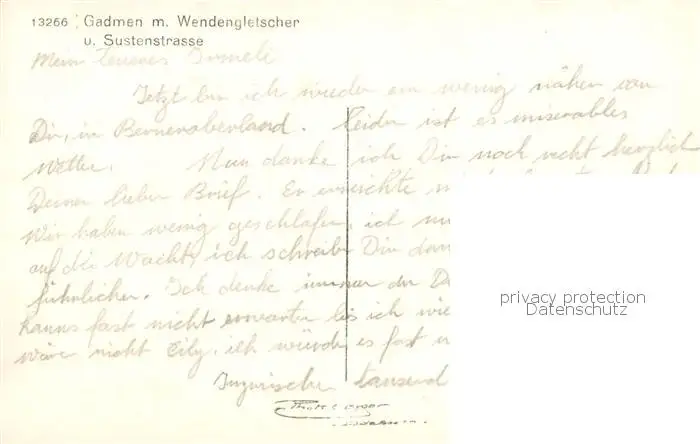 13266 Gadmen m. Wendengletscher
u. Sustenstrasse
Mein
Jetzt bin ich wieder ein wenig näher von
Dir, in Berneroberland. Leider ist es miserables
Wetter. Nun danke ich Dir noch recht herzlich
Deinen lieben Brief. Er erreichte
Wir haben wenig geschlafen, ich
auf die Wacht, ich schreibe Dir dan
führlicher. Ich denke immer an D
kanns fast nicht erwarten bis ich wie
wäre nicht ich würde es fast
Inzwischen tausend
privacy protection
Datenschutz